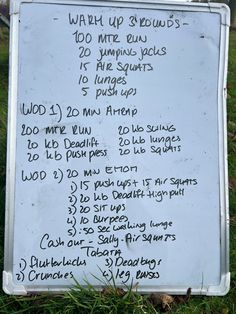 - WARM UP 3 ROUNDS -
100 MTR RUN
20 jumping jacks
15 Air Squats
10 lunges
5 push ups
WOD 1) 20 MN AMRAP
200 MTR RUN 20 kb SWING
20 kb Deadlift 20 kb lunges
20 kb push press 20 kb Squats
WOD 2) 20 MN EMOM
1) 15 push ups + 15 Air Squats
2) 20 kb Deadlift High pull
3) 20 SIT UPS
4) 10 Burpees
5) :50 sec walking lunge
Cash out - Sally - Air Squats
Tabata
1) flutterkicks 3) Dead bugs
2) Crunches 4) leg raises